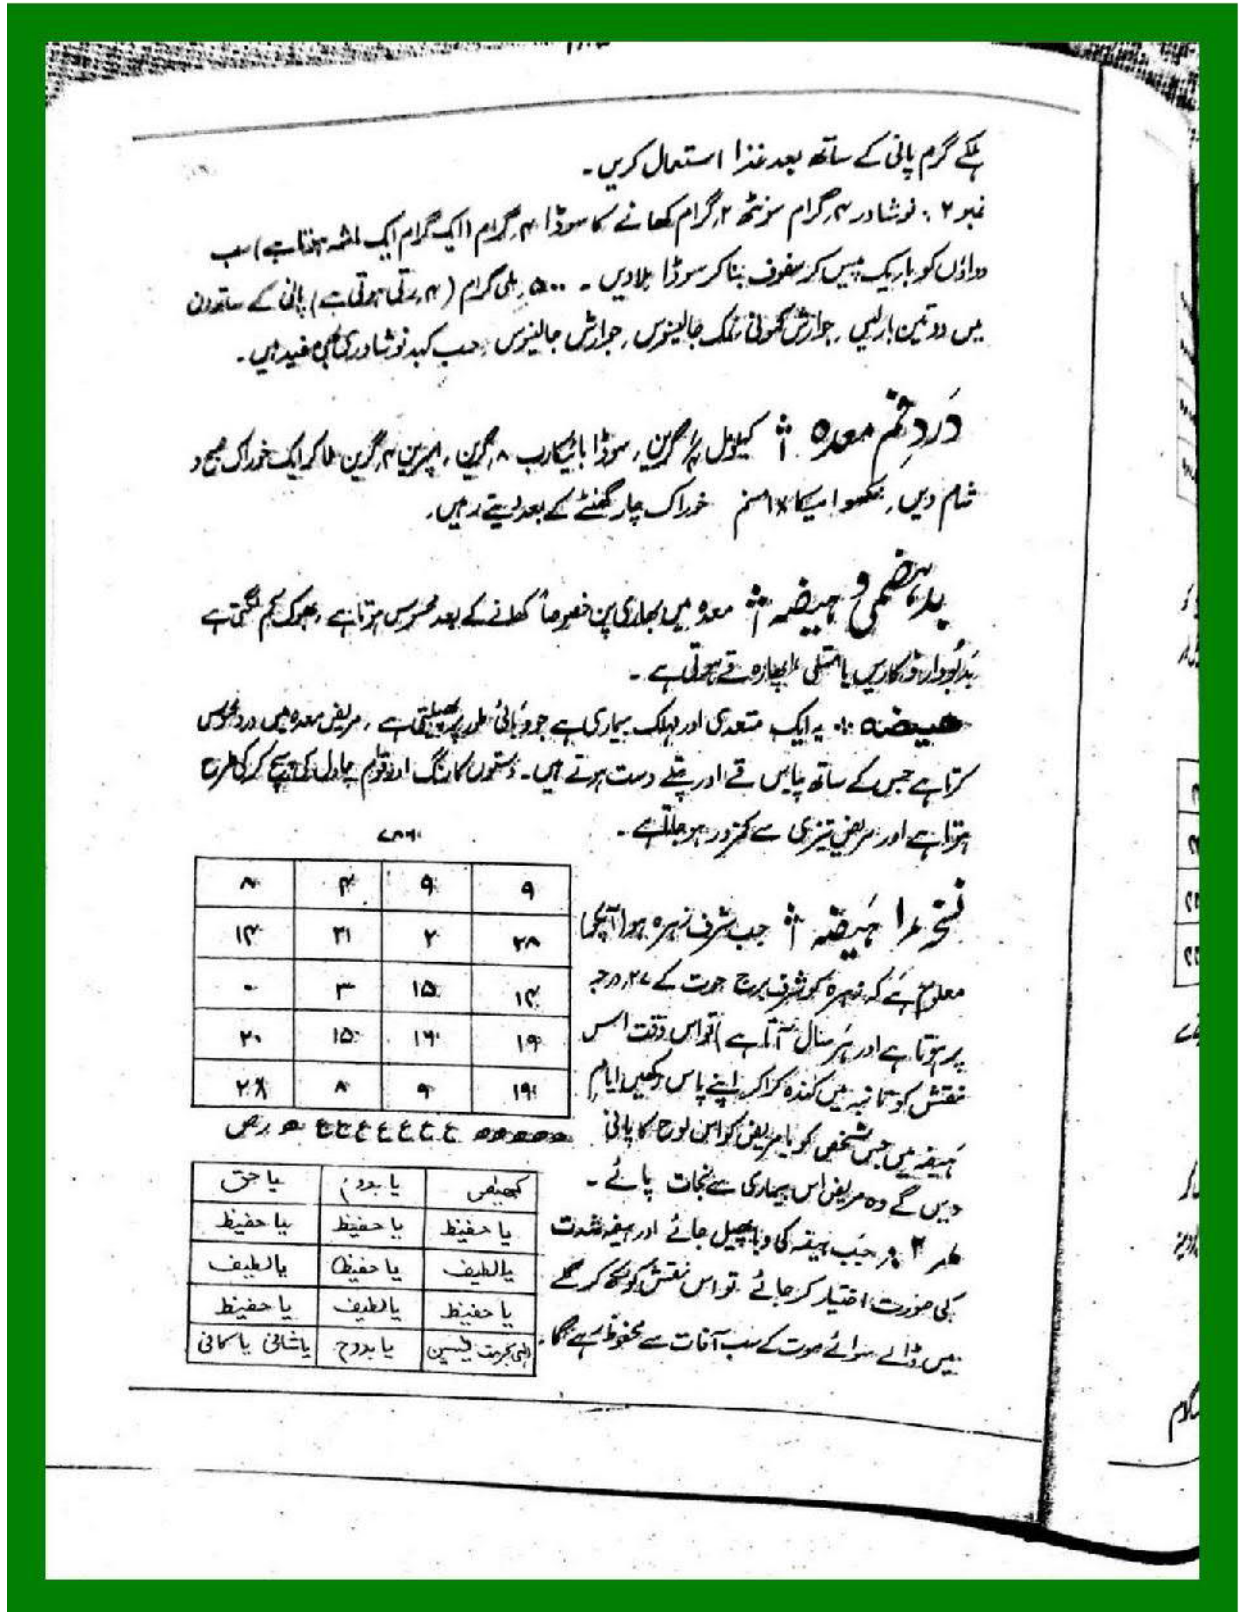 ہلکے گرم پانی کے ساتھ بعد غذا استعمال کریں۔
نمبر ۲: نوشادر ۴ گرام سونٹھ ۲ گرام کھانے کا سوڈا ۴ گرام (ایک گرام ایک ماشہ ہوتا ہے) سب
دواؤں کو باریک پیس کر سفوف بنا کر سوڈا ملادیں۔ ۵۰۰ ملی گرام (۴ رتی ہوتی ہے) پانی کے ساتھ دن
میں دو تین بار لیں، جوارش کمونی، نمک جالینوس، جوارش جالینوس، حب کبد نوشادری بھی مفید ہیں۔
دَردِ فم معدہ کیلومل گرین، سوڈا بائیکارب ۸ گرین، گرین ملا کر ایک خوراک صبح و
شام دیں، خوراک چار گھنٹے کے بعد دیتے رہیں۔
بدہضمی و ہیضہ معدہ میں بھاری پن خصوصاً کھانے کے بعد محسوس ہوتا ہے، بھوک کم لگتی ہے
بدبودار ڈکاریں یا متلی اپھارہ قے ہوتی ہے۔
ہیضہ: یہ ایک متعدی اور مہلک بیماری ہے جو وبائی طور پر پھیلتی ہے، مریض معدہ میں درد محسوس
کرتا ہے جس کے ساتھ پیاس قے اور پتلے دست ہوتے ہیں۔ دستوں کا رنگ اور قوام چاول کی پیچ کی طرح
ہوتا ہے اور مریض تیزی سے کمزور ہو جاتا ہے۔
۷۸۶
۸ ۴ ۹ ۹
۱۴ ۲۱ ۲ ۲۸
۳ ۱۵ ۱۴
۲۰ ۱۵ ۱۶ ۱۹
۲۸ ۸ ۹ ۱۹
نسخہ ۱ ہیضہ جب شرف زہرہ ہو (آپکو
معلوم ہے کہ زہرہ کو شرف برج حوت کے ۲۷ درجہ
پر ہوتا ہے اور ہر سال آتا ہے) تو اس وقت اس
نقش کو تانبہ میں کندہ کرا کر اپنے پاس رکھیں ایام
ہیضہ میں جس شخص کو یا مریض کو اس لوح کا پانی
دیں گے وہ مریض اس بیماری سے نجات پائے۔
نمبر ۲: جب ہیضہ کی وبا پھیل جائے اور ہیضہ شدت
کی صورت اختیار کر جائے تو اس نقش کو لکھ کر گلے
میں ڈالے سوائے موت کے سب آفات سے محفوظ رہے گا۔
کھیعص یا بدوح یا حق
یا حفیظ یا حفیظ یا حفیظ
یا لطیف یا حفیظ یا لطیف
یا حفیظ یا لطیف یا حفیظ
الٰہی بحرمت یٰسین یا بدوح یا شافی یا کافی